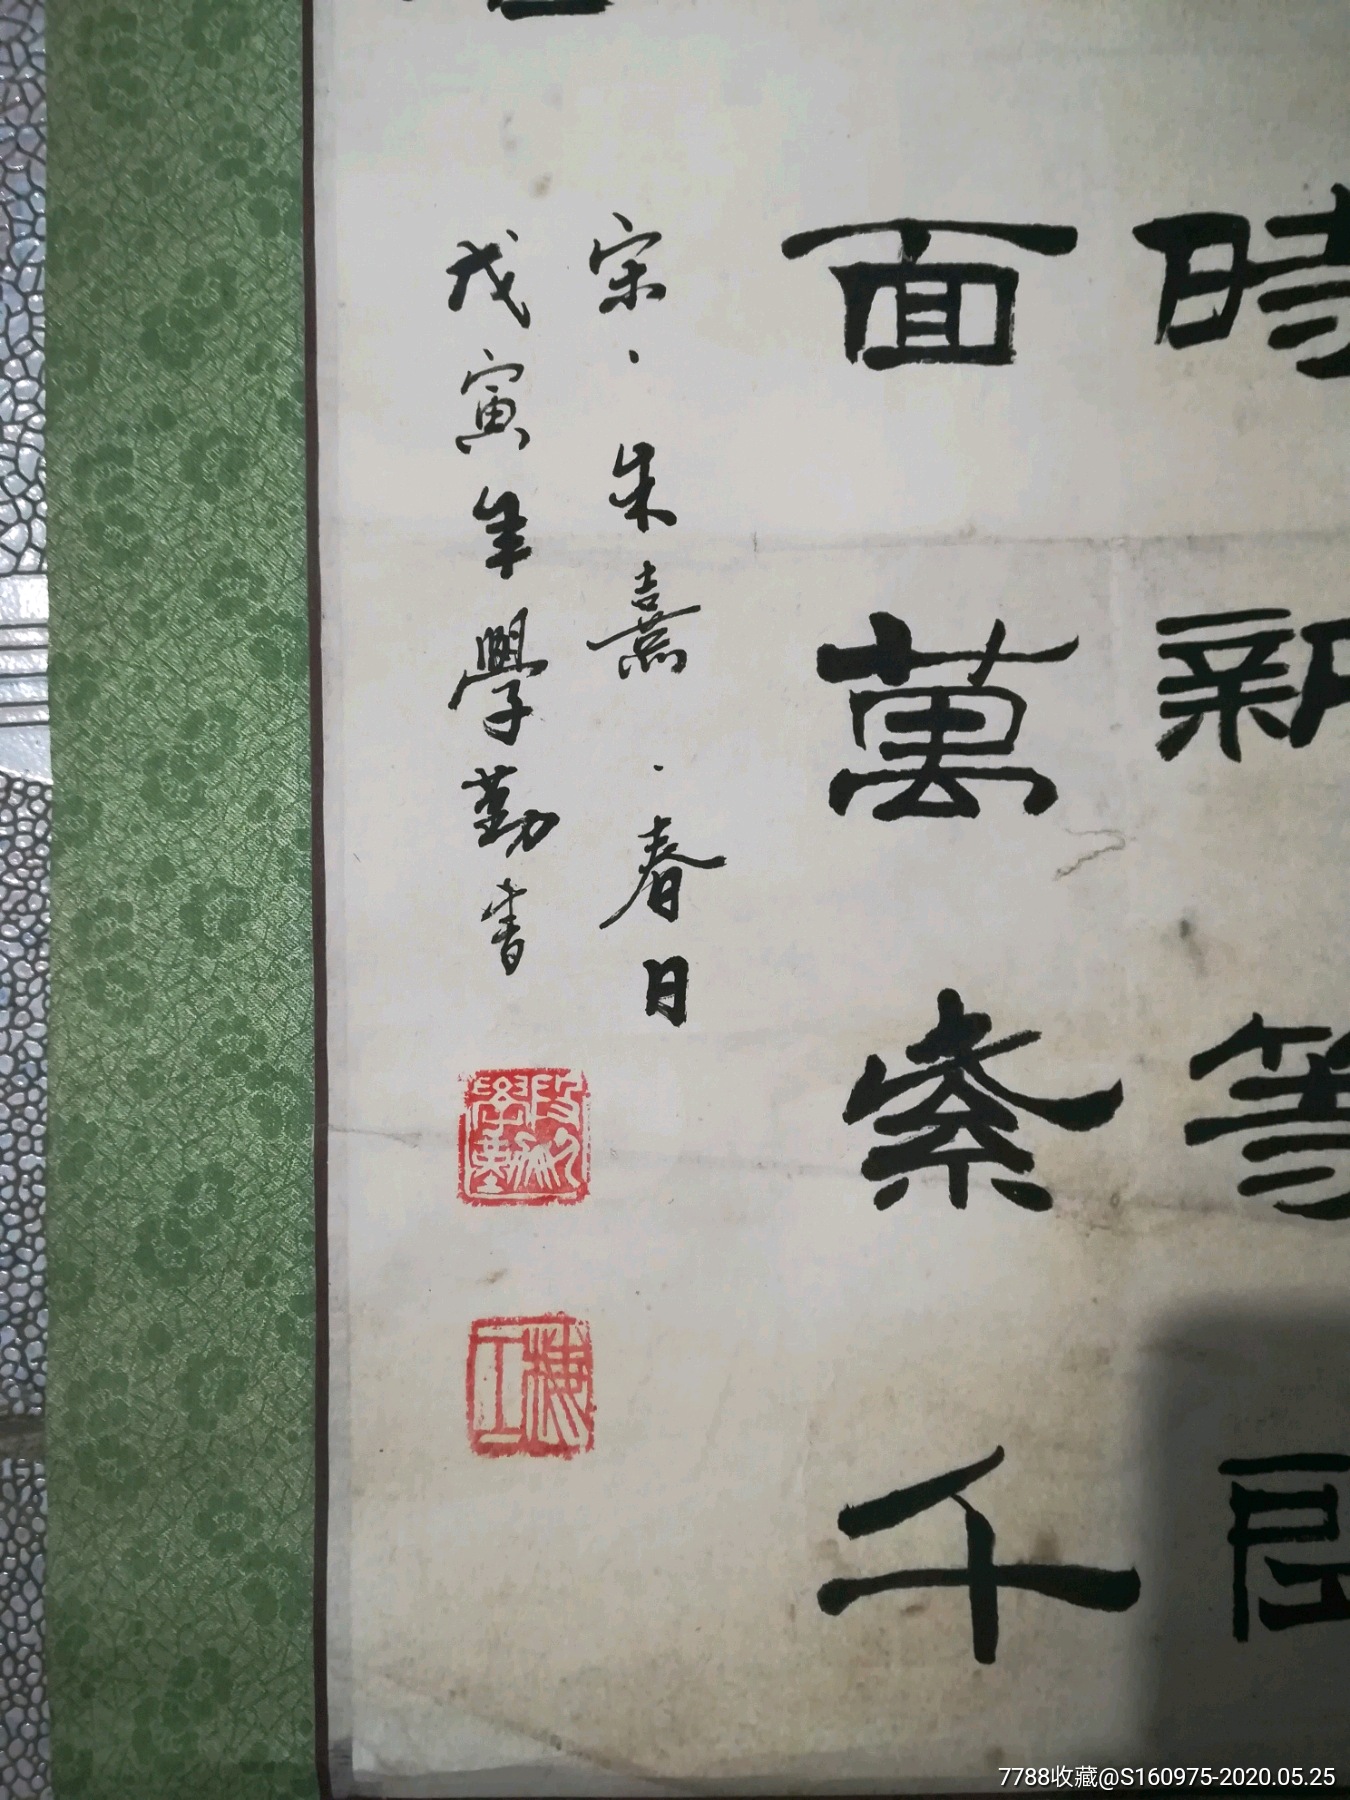 時新等閑
面萬紫千
宋·朱熹·春日
戊寅年學勤書
7788收藏@S160975-2020.05.25